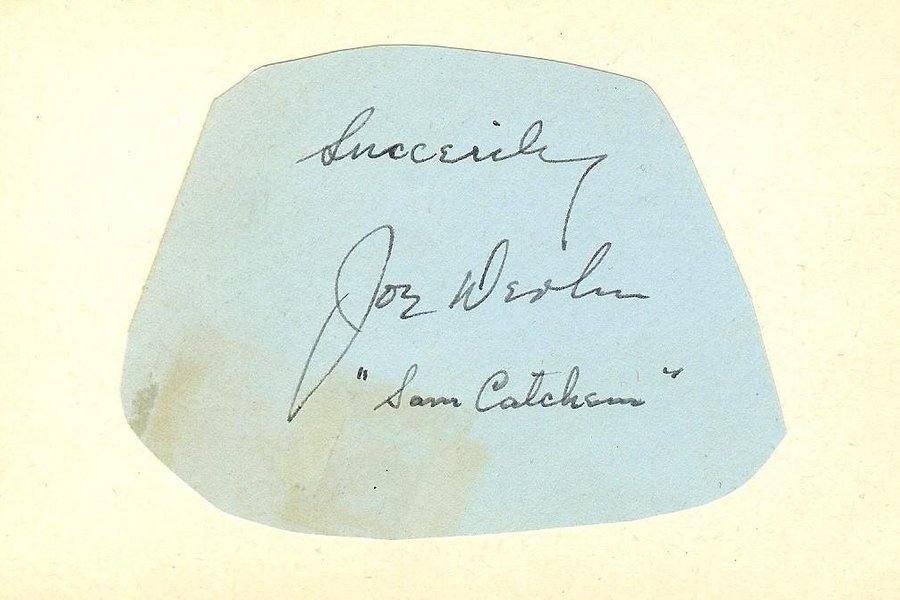 Sincerely
Joe Devlin
"Sam Catchem"